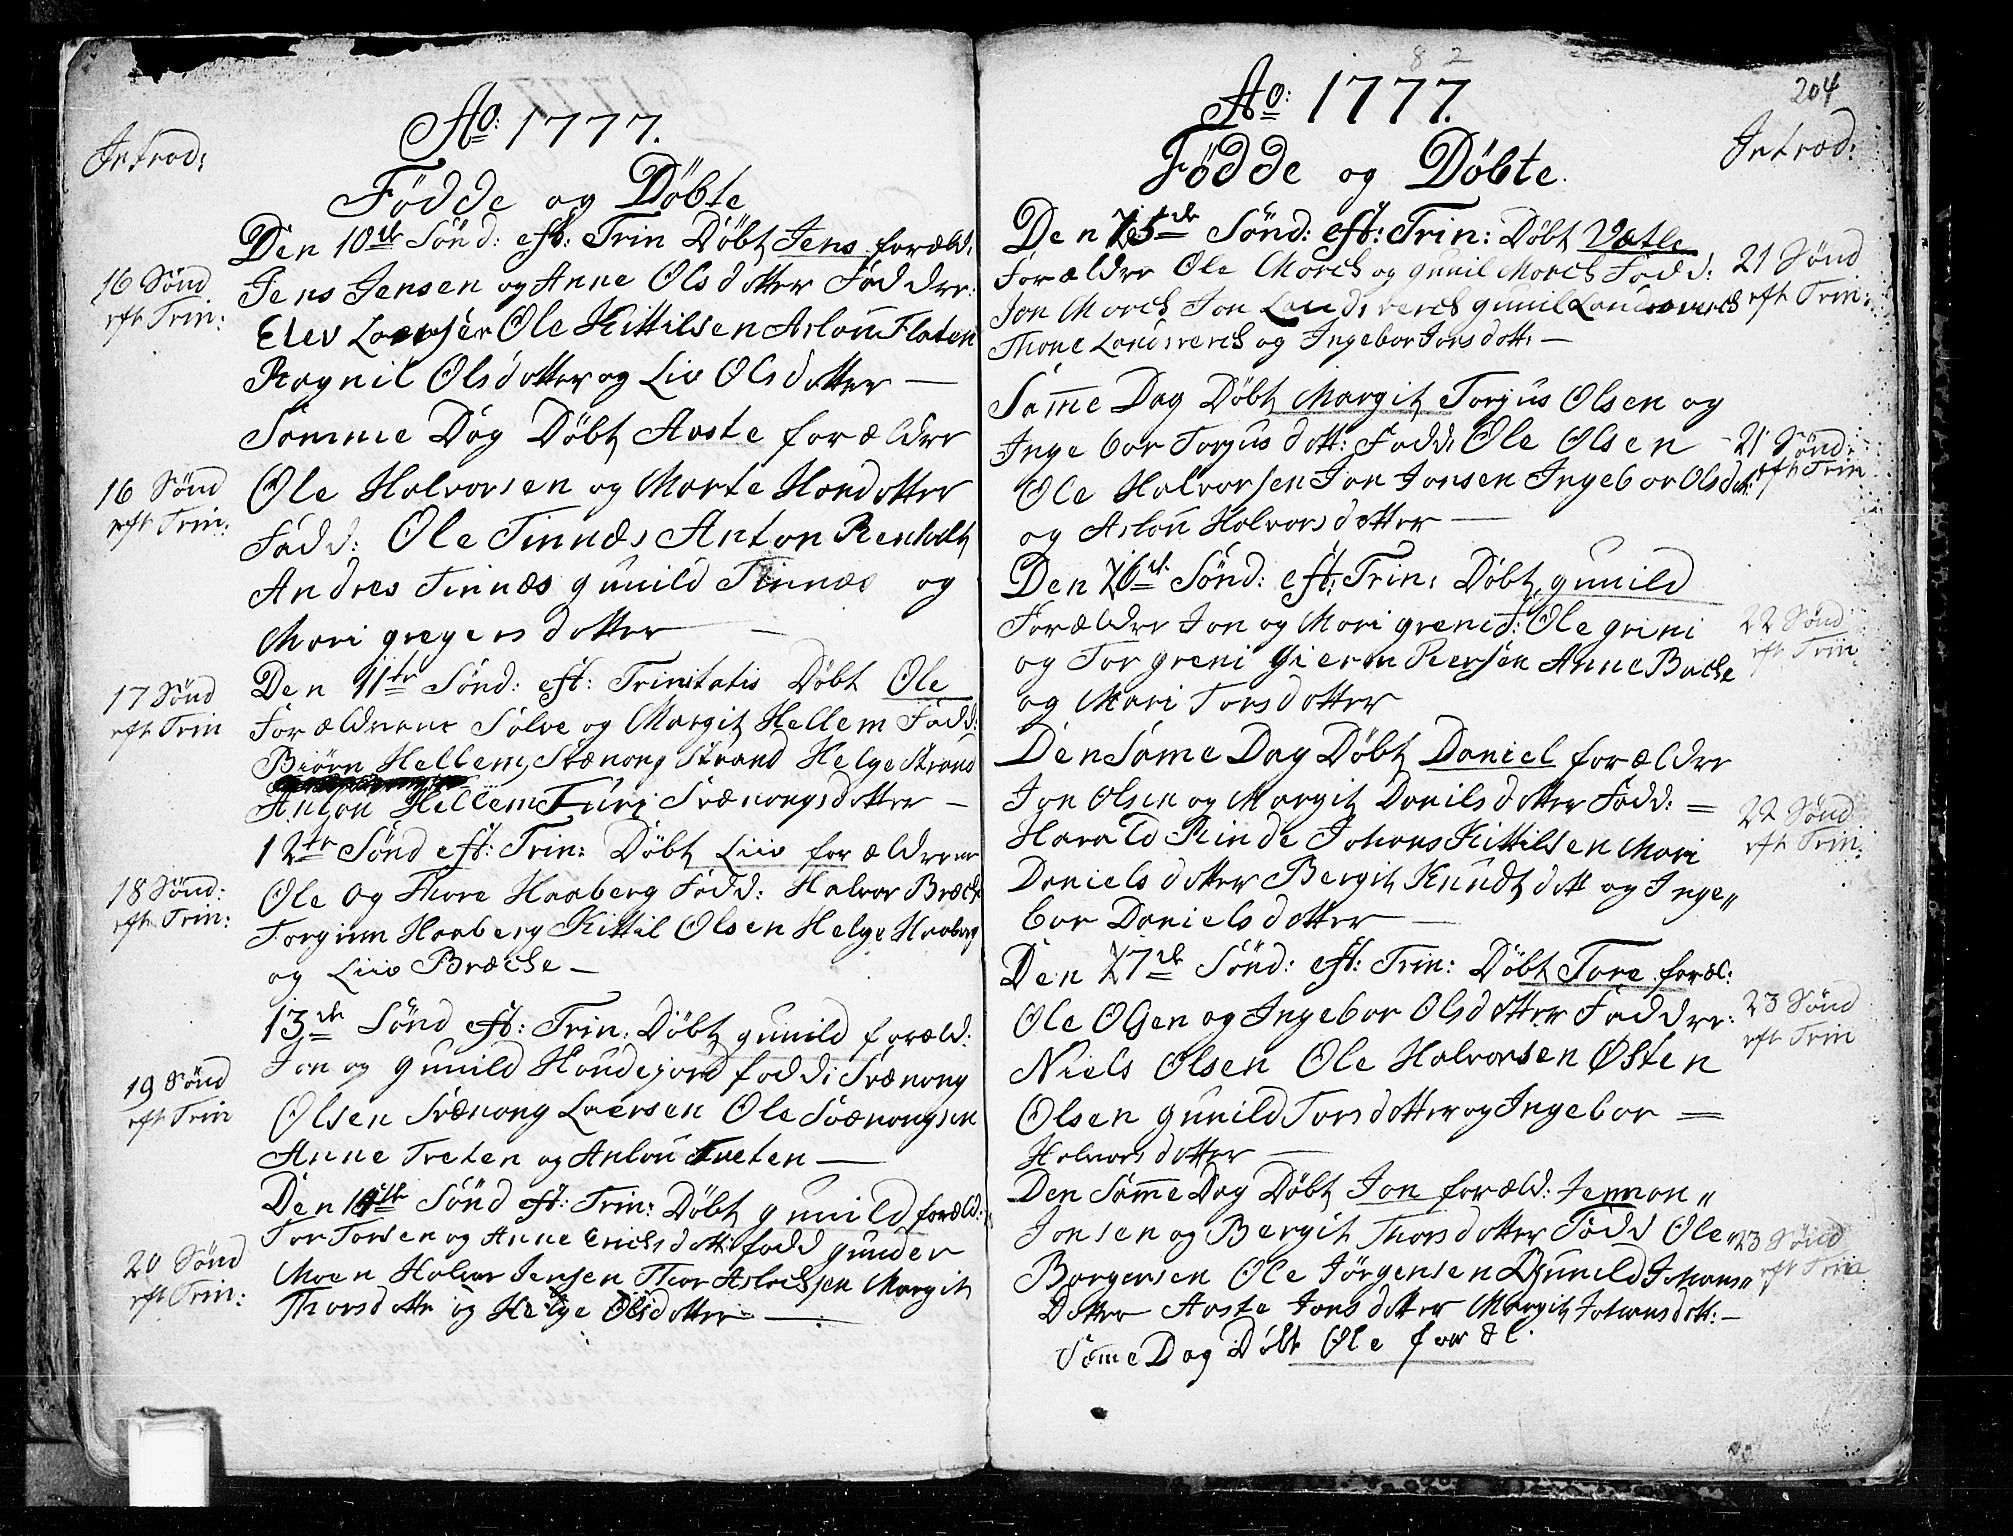 Ao: 1777.
Introd:
Födde og Döbte
Den 10de Sönd: eft: Trin Döbt Jens foræld:
16 Sönd
eft Trin:
Jens Jensen og Anne Olsdotter Faddre:
Elev Laersen Ole Kittilsen Aslou Flaten
Ragnil Olsdotter og Liv Olsdotter —
Samme Dag Döbt Aaste forældre
16 Sönd
eft Trin:
Ole Halvorsen og Marte Hansdotter
Fadd: Ole Tinnæs Anton Renholt
Andres Tinnæs gunild Tinnæs og
Mari gregersdotter —
Den 11te Sönd: eft: Trinitatis Döbt Ole
17 Sönd
eft Trin
Forældrene Sölve og Margit Hellem Fadd:
Biörn Hellem, Svænong Strand Helge Strand
Anlou Hellem Turi Svænongsdotter —
12te Sönd eft: Trin: Döbt Liiv forældrene
18 Sönd:
eft Trin:
Ole og Thore Haaberg Fadd: Halvor Bræche
Torginn Haaberg Kittil Olsen Helge Haaberg
og Liiv Bræche —
13de Sönd eft: Trin: Döbt gunild foræld:
Jon og gunild Haudejord fadd: Svænong
19 Sönd
eft Trin
Olsen Svænong Laersen Ole Svænongsen
Anne Treten og Anlou Tveten —
Den 14de Sönd eft: Trin: Döbt gunild foræld:
Tor Torsen og Anne Erichsdott: fadd gunder
20 Sönd
eft Trin:
Moen Halvor Jensen Thor Aslachsen Margit
Thorsdotte og Helge Olsdotter —
82
204
Ao: 1777.
Introd:
Födde og Döbte.
Den 15de Sönd: eft: Trin: Döbt Vetle
21 Sönd
eft Trin:
Forældre Ole Morch og gunil Morch Fadd:
Jon Morch Jon Landsverch gunil Landsverch
Thone Landsverch og Ingebor Jonsdott: —
Samme Dag Döbt Margit Torgus Olsen og
21 Sönd:
eft Trin
Ingebor Torgusdott: Fadd: Ole Olsen
Ole Halvorsen Jon Jonsen Ingebor Olsdott:
og Aslou Halvorsdotter —
Den 16de Sönd: eft: Trin: Döbt gunild
22 Sönd
eft Trin
Forældre Jon og Mari greni F: Ole grini
og Tor greni Gierm Peersen Anne Bache
og Mari Torsdotter
Den Same Dag Döbt Daniel forældre
Jon Olsen og Margit Danilsdotter Fadd: =
22 Sönd
eft Trin:
Harald Rinde Johans Kittilsen Mari
Danielsdotter Bergit Knudtdott og Inge„
bor Danielsdotter —
Den 17de Sönd: eft: Trin: Döbt Tore foræl:
23 Sönd
eft Trin
Ole Olsen og Ingebor Olsdotter Faddre:
Niels Olsen Ole Halvorsen Østen
Olsen gunild Torsdotter og Ingebor =
Halvorsdotter —
Den Samme Dag Döbt Jon foræld: Jermon„
Jonsen og Bergit Thorsdotter Fadd Ole
23 Sönd
eft Trin
Borgersen Ole Jörgensen Gunild Johans„
Dotter Aaste Jonsdotter Margit Johansdott: —
Same Dag Döbt Ole foræl.